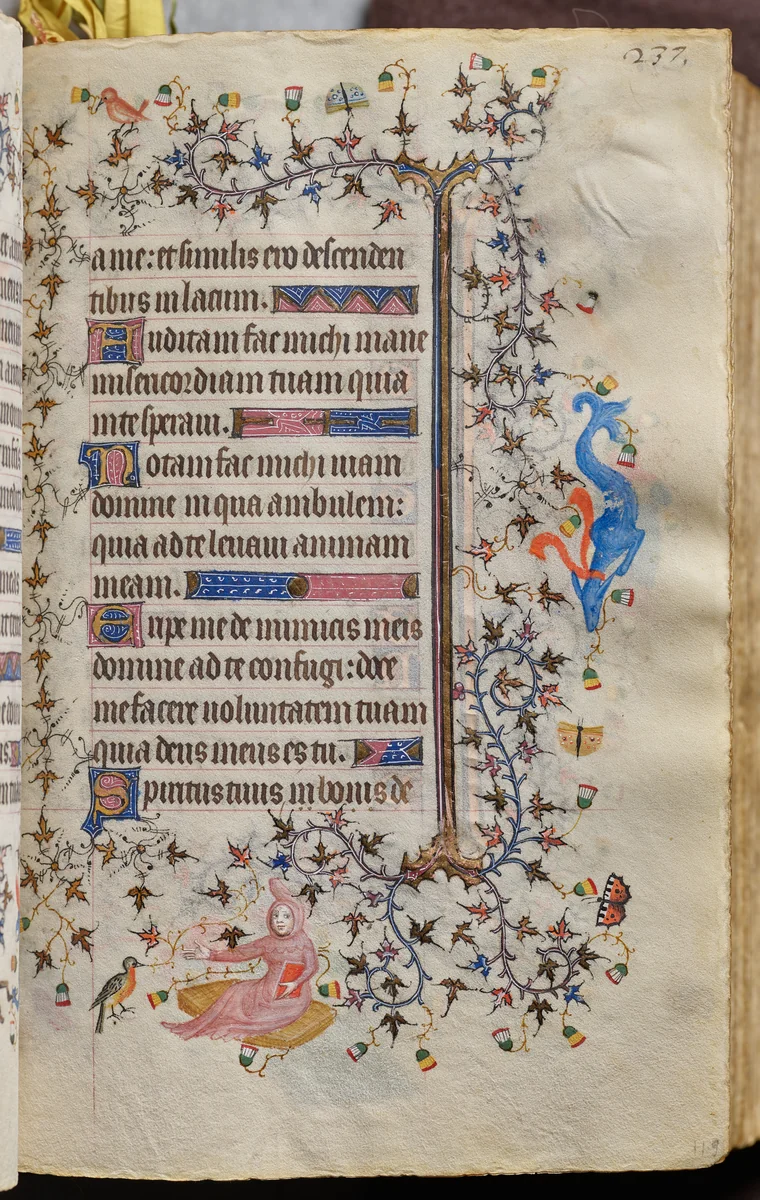 237.
a me: et similis ero descenden
tibus in lacum.
Auditam fac michi mane
misericordiam tuam quia
in te speraui.
Notam fac michi uiam
domine in qua ambulem:
quia ad te leuaui animam
meam.
Eripe me de inimicis meis
domine ad te confugi: doce
me facere uoluntatem tuam
quia deus meus es tu.
Spiritus tuus in bonus de
119